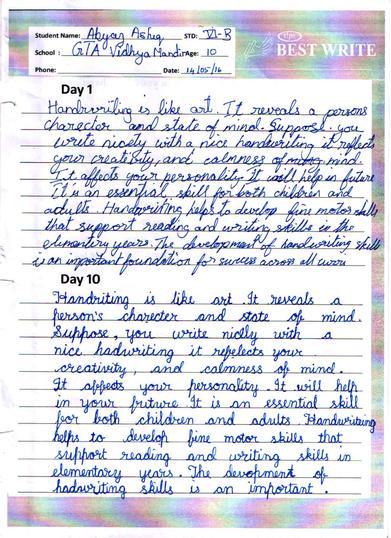 Student Name: Abyaz Ashiq STD: VI-B
School: GTA Vidhya Mandir Age: 10
Phone: Date: 14/05/16
BEST WRITE
Day 1
Handwriting is like art. It reveals a persons
charecter and state of mind. Suppose you
write nicely with a nice handwriting it reflects
your creativity, and calmness of mind.
It affects your personality. It will help in future
It is an essential skill for both children and
adults. Handwriting helps to develop fine motor skills
that support reading and writing skills in the
elementry years. The development of handwriting skills
is an important foundation for success across all
Day 10
Handriting is like art. It reveals a
person's charecter and state of mind.
Suppose, you write nicdly with a
nice hadwriting it repelects your
creativity, and calmness of mind.
It affects your personality. It will help
in your furture. It is an essential skill
for both children and adults. Handwriteing
helps to develop fine motor skills that
support reading and writing skills in
elementary years. The devopment of
hadwriting skills is an important.